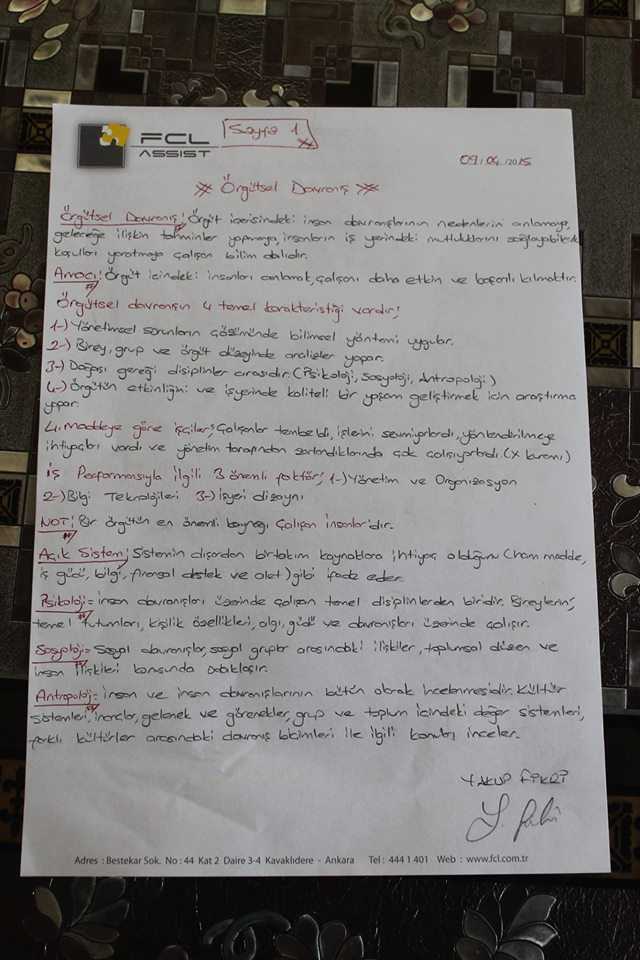 FCL
ASSIST
Sayfa 1
09/04/2015
Örgütsel Davranış
Örgütsel Davranış; Örgüt içerisindeki insan davranışlarının nedenlerini anlamaya,
geleceğe ilişkin tahminler yapmaya, insanların iş yerindeki mutluluklarını sağlayabilecek
koşulları yaratmaya çalışan bilim dalıdır.
Amacı; Örgüt içindeki insanları anlamak, çalışanı daha etkin ve başarılı kılmaktır.
Örgütsel davranışın 4 temel karakteristiği vardır;
1-) Yönetimsel sorunların çözümünde bilimsel yöntemi uygular.
2-) Birey, grup ve örgüt düzeyinde analizler yapar.
3-) Doğası gereği disiplinler arasıdır. (Psikoloji, Sosyoloji, Antropoloji)
4-) Örgütün etkinliğini ve işyerinde kaliteli bir yaşam geliştirmek için araştırma
yapar.
4. Maddeye göre işçiler; Çalışanlar tembeldi, işlerini sevmiyorlardı, yönlendirilmeye
ihtiyaçları vardı ve yönetim tarafından zorlandıklarında çok çalışıyorlardı. (X kuramı)
İş Performansıyla ilgili 3 önemli faktör; 1-) Yönetim ve Organizasyon
2-) Bilgi Teknolojileri 3-) İşyeri dizaynı
NOT; Bir örgütün en önemli kaynağı Çalışan İnsanlar'dır.
Açık Sistem; Sistemin dışardan birtakım kaynaklara ihtiyaç olduğunu (ham madde,
iş gücü, bilgi, finansal destek ve alet) gibi ifade eder.
Psikoloji = İnsan davranışları üzerinde çalışan temel disiplinlerden biridir. Bireylerin;
temel tutumları, kişilik özellikleri, algı, güdü ve davranışları üzerinde çalışır.
Sosyoloji = Sosyal davranışlar, sosyal gruplar arasındaki ilişkiler, toplumsal düzen ve
insan ilişkileri konusunda odaklaşır.
Antropoloji = İnsan ve insan davranışlarının bütün olarak incelenmesidir. Kültür
sistemleri, inançlar, gelenek ve görenekler, grup ve toplum içindeki değer sistemleri,
farklı kültürler arasındaki davranış biçimleri ile ilgili konuları inceler.
YAKUP FİKRİ
Adres : Bestekar Sok. No : 44 Kat 2 Daire 3-4 Kavaklıdere - Ankara Tel : 444 1 401 Web : www.fcl.com.tr